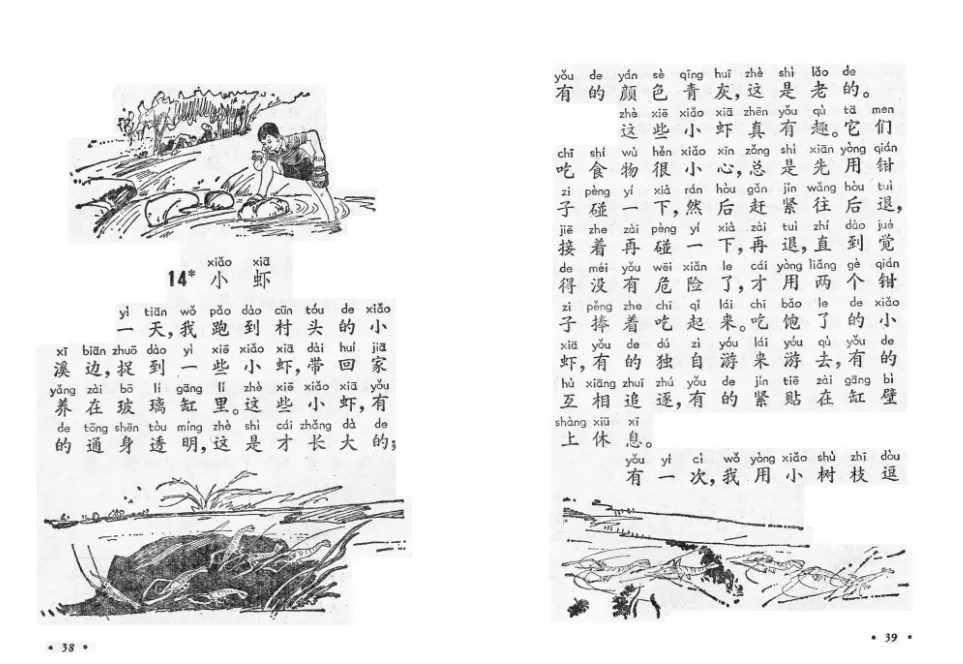 xiǎo xiā
14* 小 虾
yì tiān wǒ pǎo dào cūn tóu de xiǎo
一 天,我 跑 到 村 头 的 小
xī biān zhuō dào yì xiē xiǎo xiā dài huí jiā
溪 边,捉 到 一 些 小 虾,带 回 家
yǎng zài bō lí gāng lǐ zhè xiē xiǎo xiā yǒu
养 在 玻 璃 缸 里。这 些 小 虾,有
de tōng shēn tòu míng zhè shì cái zhǎng dà de
的 通 身 透 明,这 是 才 长 大 的;
• 38 •
yǒu de yán sè qīng huī zhè shì lǎo de
有 的 颜 色 青 灰,这 是 老 的。
zhè xiē xiǎo xiā zhēn yǒu qù tā men
这 些 小 虾 真 有 趣。它 们
chī shí wù hěn xiǎo xīn zǒng shì xiān yòng qián
吃 食 物 很 小 心,总 是 先 用 钳
zi pèng yí xià rán hòu gǎn jǐn wǎng hòu tuì
子 碰 一 下,然 后 赶 紧 往 后 退,
jiē zhe zài pèng yí xià zài tuì zhí dào jué
接 着 再 碰 一 下,再 退,直 到 觉
de méi yǒu wēi xiǎn le cái yòng liǎng gè qián
得 没 有 危 险 了,才 用 两 个 钳
zi pěng zhe chī qǐ lái chī bǎo le de xiǎo
子 捧 着 吃 起 来。吃 饱 了 的 小
xiā yǒu de dú zì yóu lái yóu qù yǒu de
虾,有 的 独 自 游 来 游 去,有 的
hù xiāng zhuī zhú yǒu de jǐn tiē zài gāng bì
互 相 追 逐,有 的 紧 贴 在 缸 壁
shàng xiū xī
上 休 息。
yǒu yí cì wǒ yòng xiǎo shù zhī dòu
有 一 次,我 用 小 树 枝 逗
• 39 •